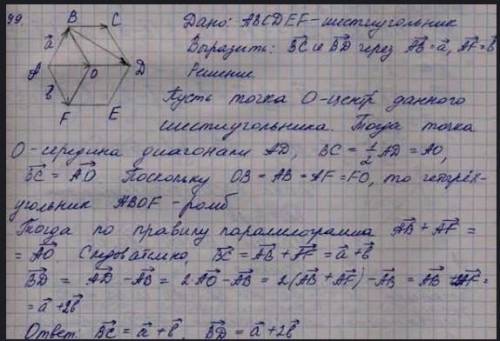 99.
B C
a⃗
A O D
b⃗
F E
Дано: ABCDEF - шестиугольник
Выразить: BC⃗ и BD⃗ через AB⃗ = a⃗, AF⃗ = b⃗
Решение
Пусть точка O - центр данного
шестиугольника. Тогда точка
O - середина диагонали AD, BC = 1/2 AD = AO,
BC⃗ = AO⃗ Поскольку OB = AB = AF = FO, то четырёх-
угольник ABOF - ромб
Тогда по правилу параллелограмма AB⃗ + AF⃗ =
= AO⃗. Следовательно, BC⃗ = AB⃗ + AF⃗ = a⃗ + b⃗
BD⃗ = AD⃗ - AB⃗ = 2AO⃗ - AB⃗ = 2(AB⃗ + AF⃗) - AB⃗ = AB⃗ + AF⃗ =
= a⃗ + 2b⃗
Ответ: BC⃗ = a⃗ + b⃗, BD⃗ = a⃗ + 2b⃗